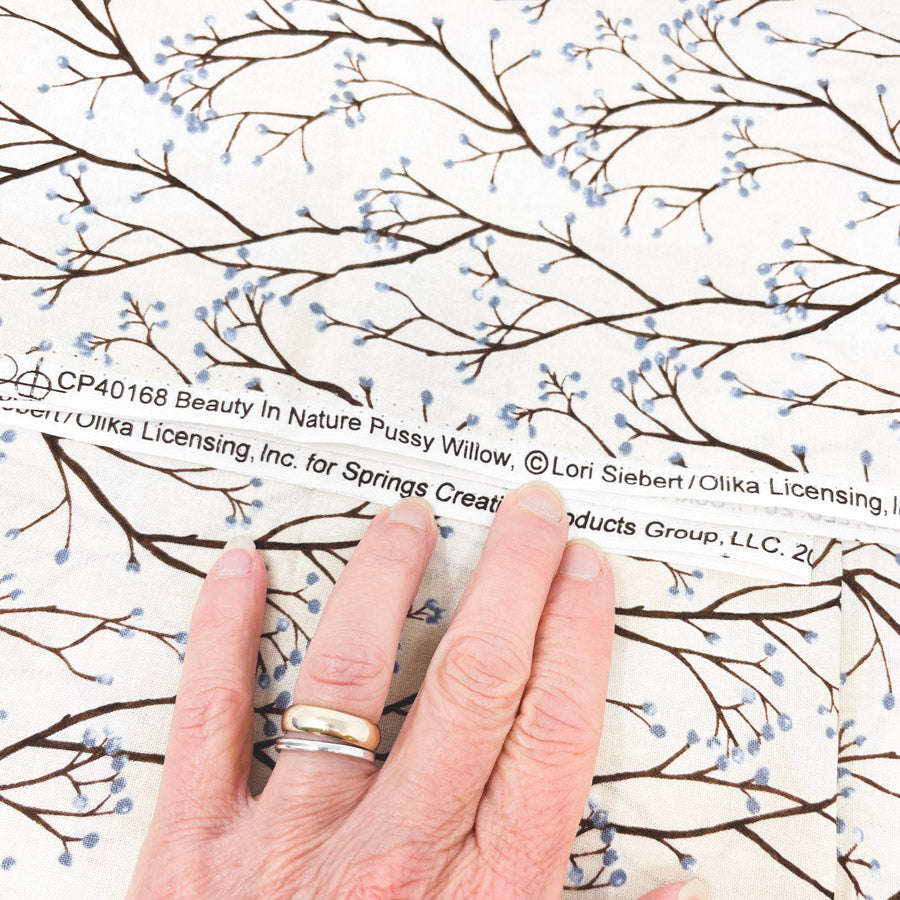 CP40168 Beauty In Nature Pussy Willow, ©Lori Siebert/Olika Licensing,
/Olika Licensing, Inc. for Springs Group, LLC.